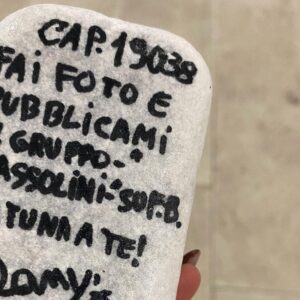 CAP. 19038
FAI FOTO E
PUBBLICAMI
GRUPPO-"
ASSOLINI"-SU F.B.
TUNA A TE!